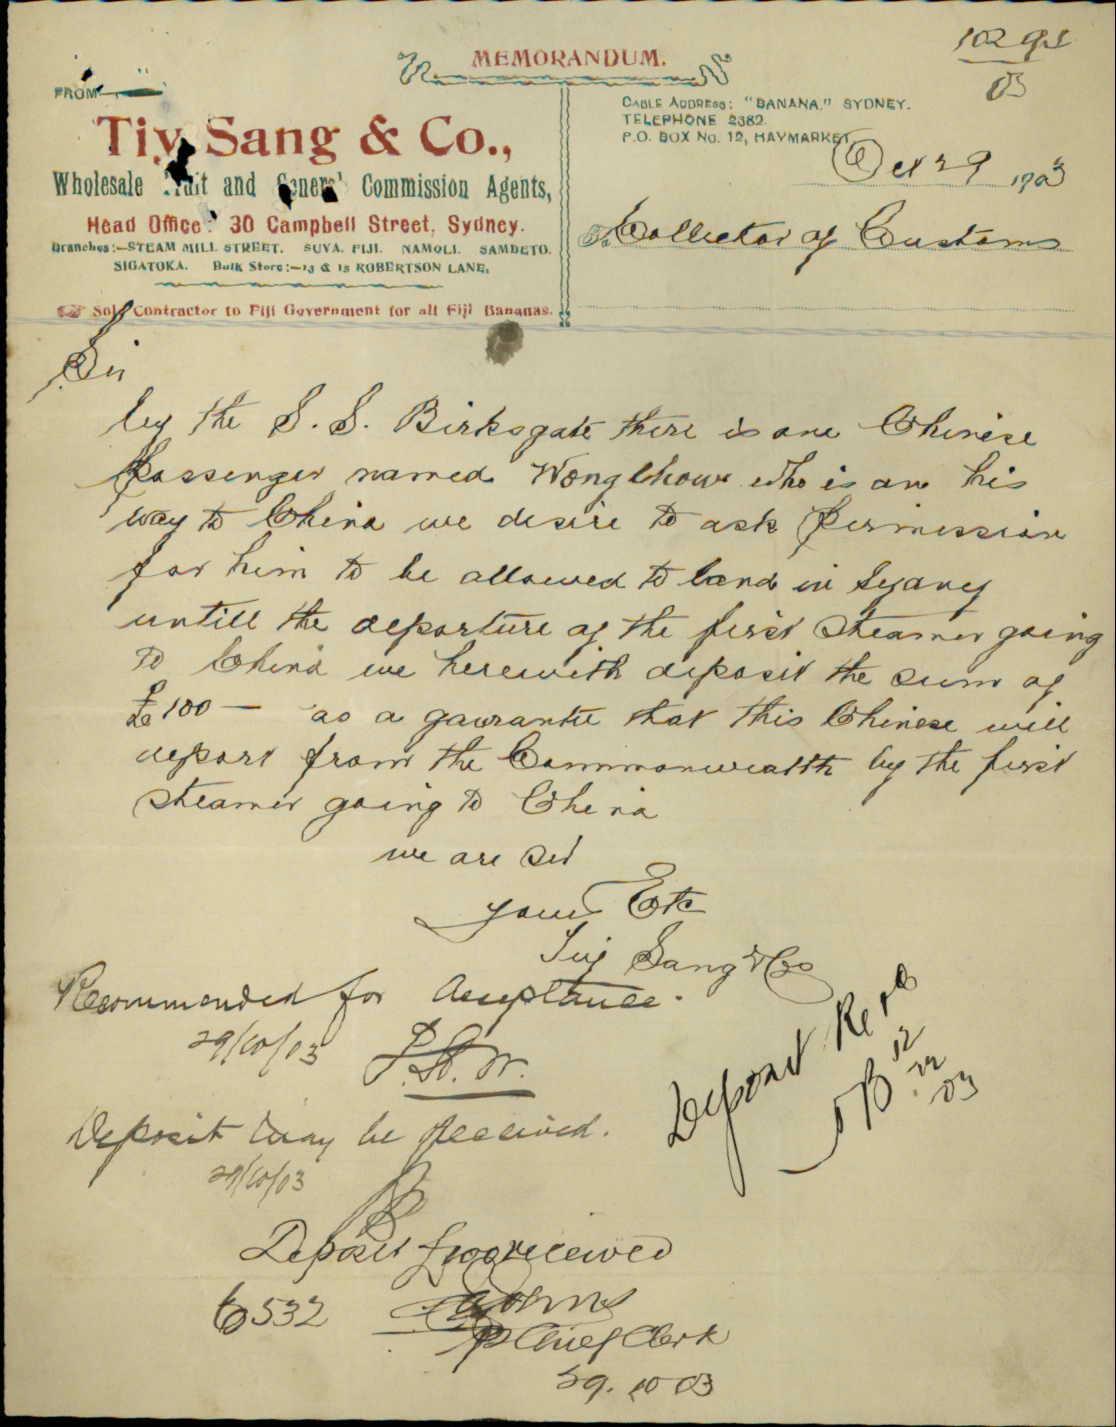 MEMORANDUM.
FROM
Tiy Sang & Co.,
Wholesale Fruit and General Commission Agents,
Head Office: 30 Campbell Street, Sydney.
Branches:—STEAM MILL STREET. SUVA, FIJI. NAMOLI. SAMBETO.
SIGATOKA. Bulk Store:—13 & 15 ROBERTSON LANE.
Sole Contractor to Fiji Government for all Fiji Bananas.
03
CABLE ADDRESS: "BANANA," SYDNEY.
TELEPHONE 2382.
P.O. BOX No. 12, HAYMARKET
Oct 29 1903
To Collector of Customs
Sir
by the S. S. Birksgate there is one Chinese
Passenger named Wong Chow who is on his
way to China we desire to ask Permission
for him to be allowed to land in Sydney
untill the departure of the first steamer going
to China we herewith deposit the sum of
£100 — as a gaurantee that this Chinese will
depart from the Commonwealth by the first
steamer going to China
we are Sir
yours Etc
Tiy Sang & Co
Recommended for acceptance.
29/10/03
Deposit may be received.
29/10/03
Deposit £100 received
532
p Chief Clerk
29. 10 03
Deposit
12
03